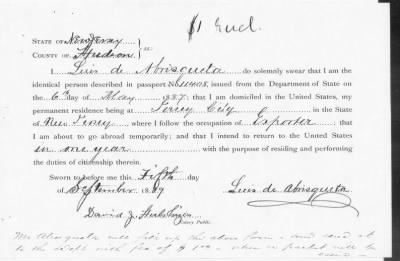 $1 Encl.
STATE OF New Jersey
COUNTY OF Hudson ss:
I Luis de Abrisqueta do solemnly swear that I am the
identical person described in passport No 21408, issued from the Department of State on
the 6th day of May 1887; that I am domiciled in the United States, my
permanent residence being at Jersey City in the State
of New Jersey, where I follow the occupation of Exporter; that
I am about to go abroad temporarily; and that I intend to return to the United States
in one year with the purpose of residing and performing
the duties of citizenship therein.
Sworn to before me this Fifth day
of September 1889 Luis de Abrisqueta
David J.
Notary Public.
Mr Abrisqueta will fill up the above form and send it
to the Dept with fee of $1.00 when a packet will be